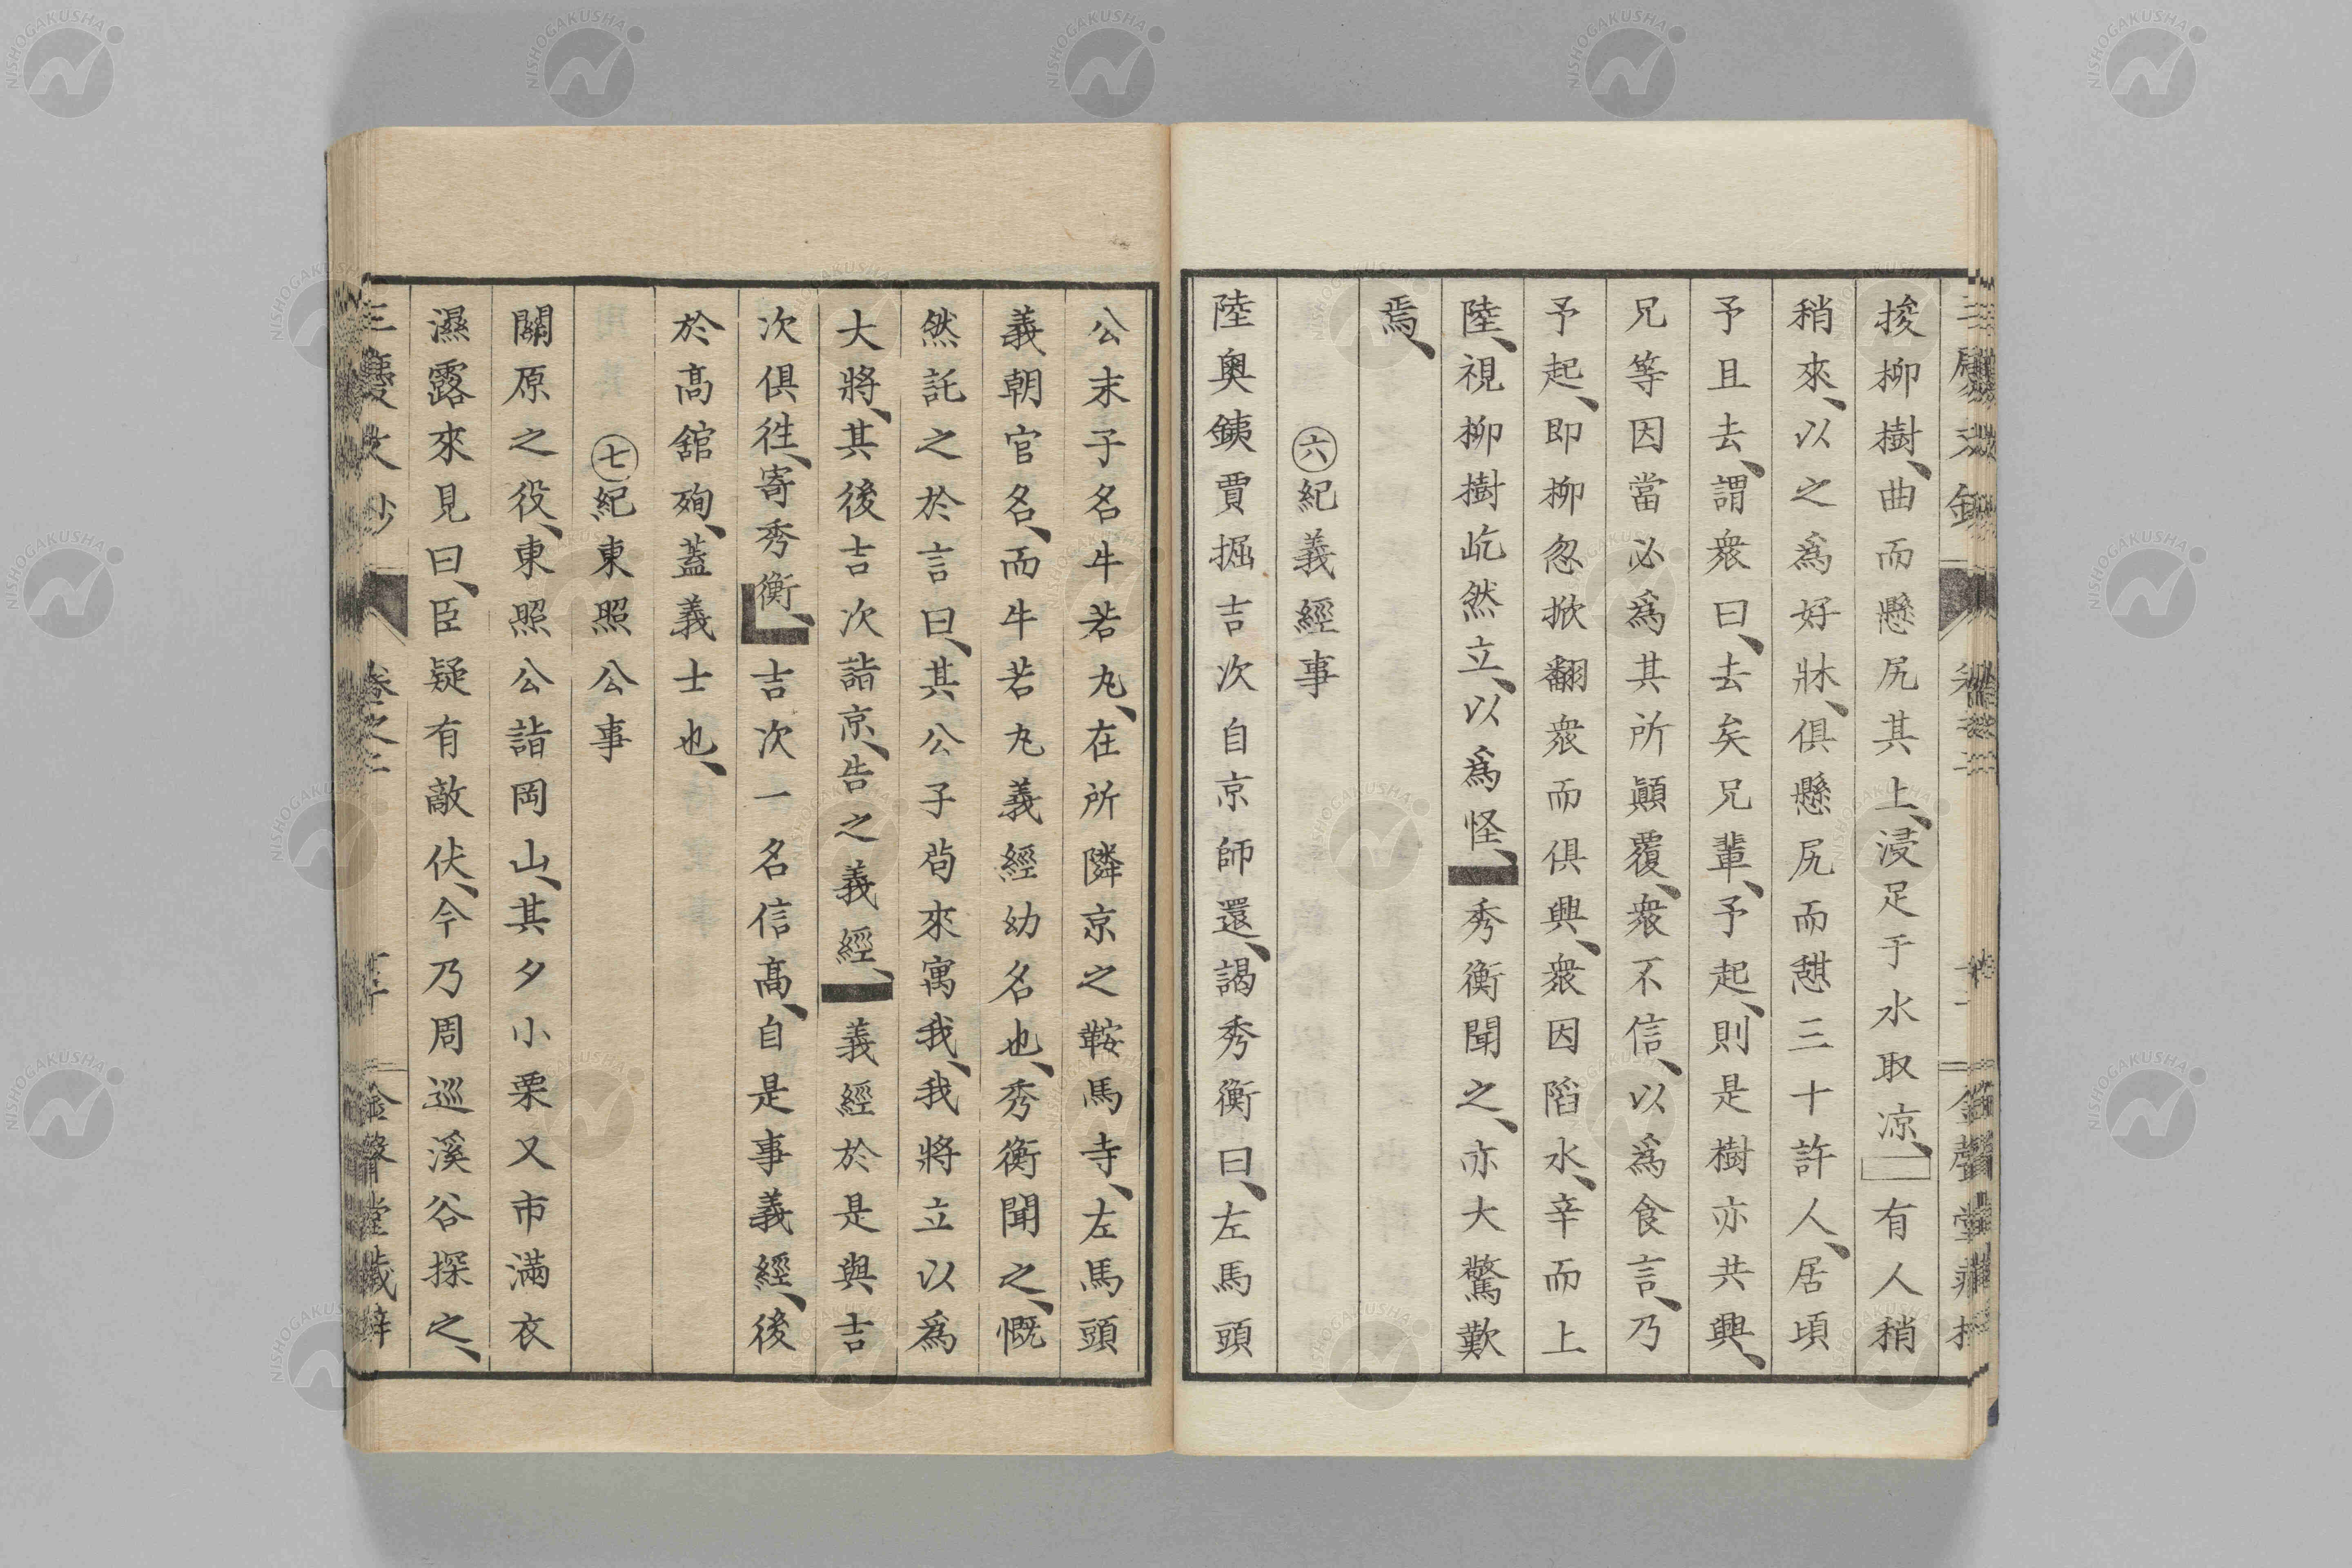 捘柳樹、曲而懸尻其上、浸足于水取凉、有人稍
稍來、以之為好牀、俱懸尻而憇三十許人、居頃
予且去、謂衆曰、去矣兄輩、予起、則是樹亦共興、
兄等因當必為其所顚覆、衆不信、以為食言、乃
予起、即柳忽掀翻衆而俱興、衆因陷水、辛而上
陸、視柳樹屹然立、以為怪、秀衡聞之、亦大驚歎
焉、
㊅紀義經事
陸奧銕賈掘吉次自京師還、謁秀衡曰、左馬頭
公末子名牛若丸、在所隣京之鞍馬寺、左馬頭
義朝官名、而牛若丸義經幼名也、秀衡聞之、慨
然託之於言曰、其公子苟來寓我、我將立以為
大將、其後吉次詣京、告之義經、義經於是與吉
次俱徃、寄秀衡、吉次一名信高、自是事義經、後
於高舘殉、蓋義士也、
㊆紀東照公事
關原之役、東照公詣岡山、其夕小栗又市滿衣
濕露來見曰、臣疑有敵伏、今乃周巡溪谷探之、
三慶文鈔 卷之二 金聲堂藏梓
NISHOGAKUSHA